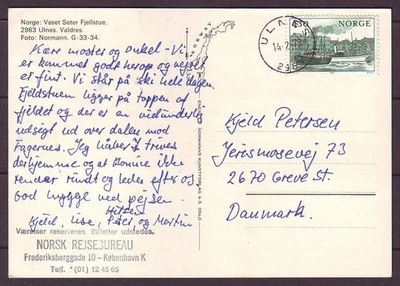 Norge: Vaset Seter Fjellstue,
2963 Ulnes. Valdres.
Foto: Normann. G-33-34.
Kære moster og onkel - Vi
er kommet godt herop og vejret
er fint. Vi står på ski hele dagen.
Fjeldstuen ligger på toppen af
fjeldet og der er en vidunderlig
udsigt ud over dalen mod
Fagernes. Jeg håber I trives
derhjemme og at Konne ikke
render rundt og leder efter os
God hygge ved pejsen.
Hilsen
Kjeld, Lise, Peter og Martin
Værelser reserveres. Billetter udstedes.
NORSK REJSEBUREAU
Frederiksberggade 10 - København K
Telf. * (01) 12 45 65
NORWAY
ULNES
14-2
NORGE
Kjeld Petersen
Jerismosevej 73
2670 Greve St.
Danmark.